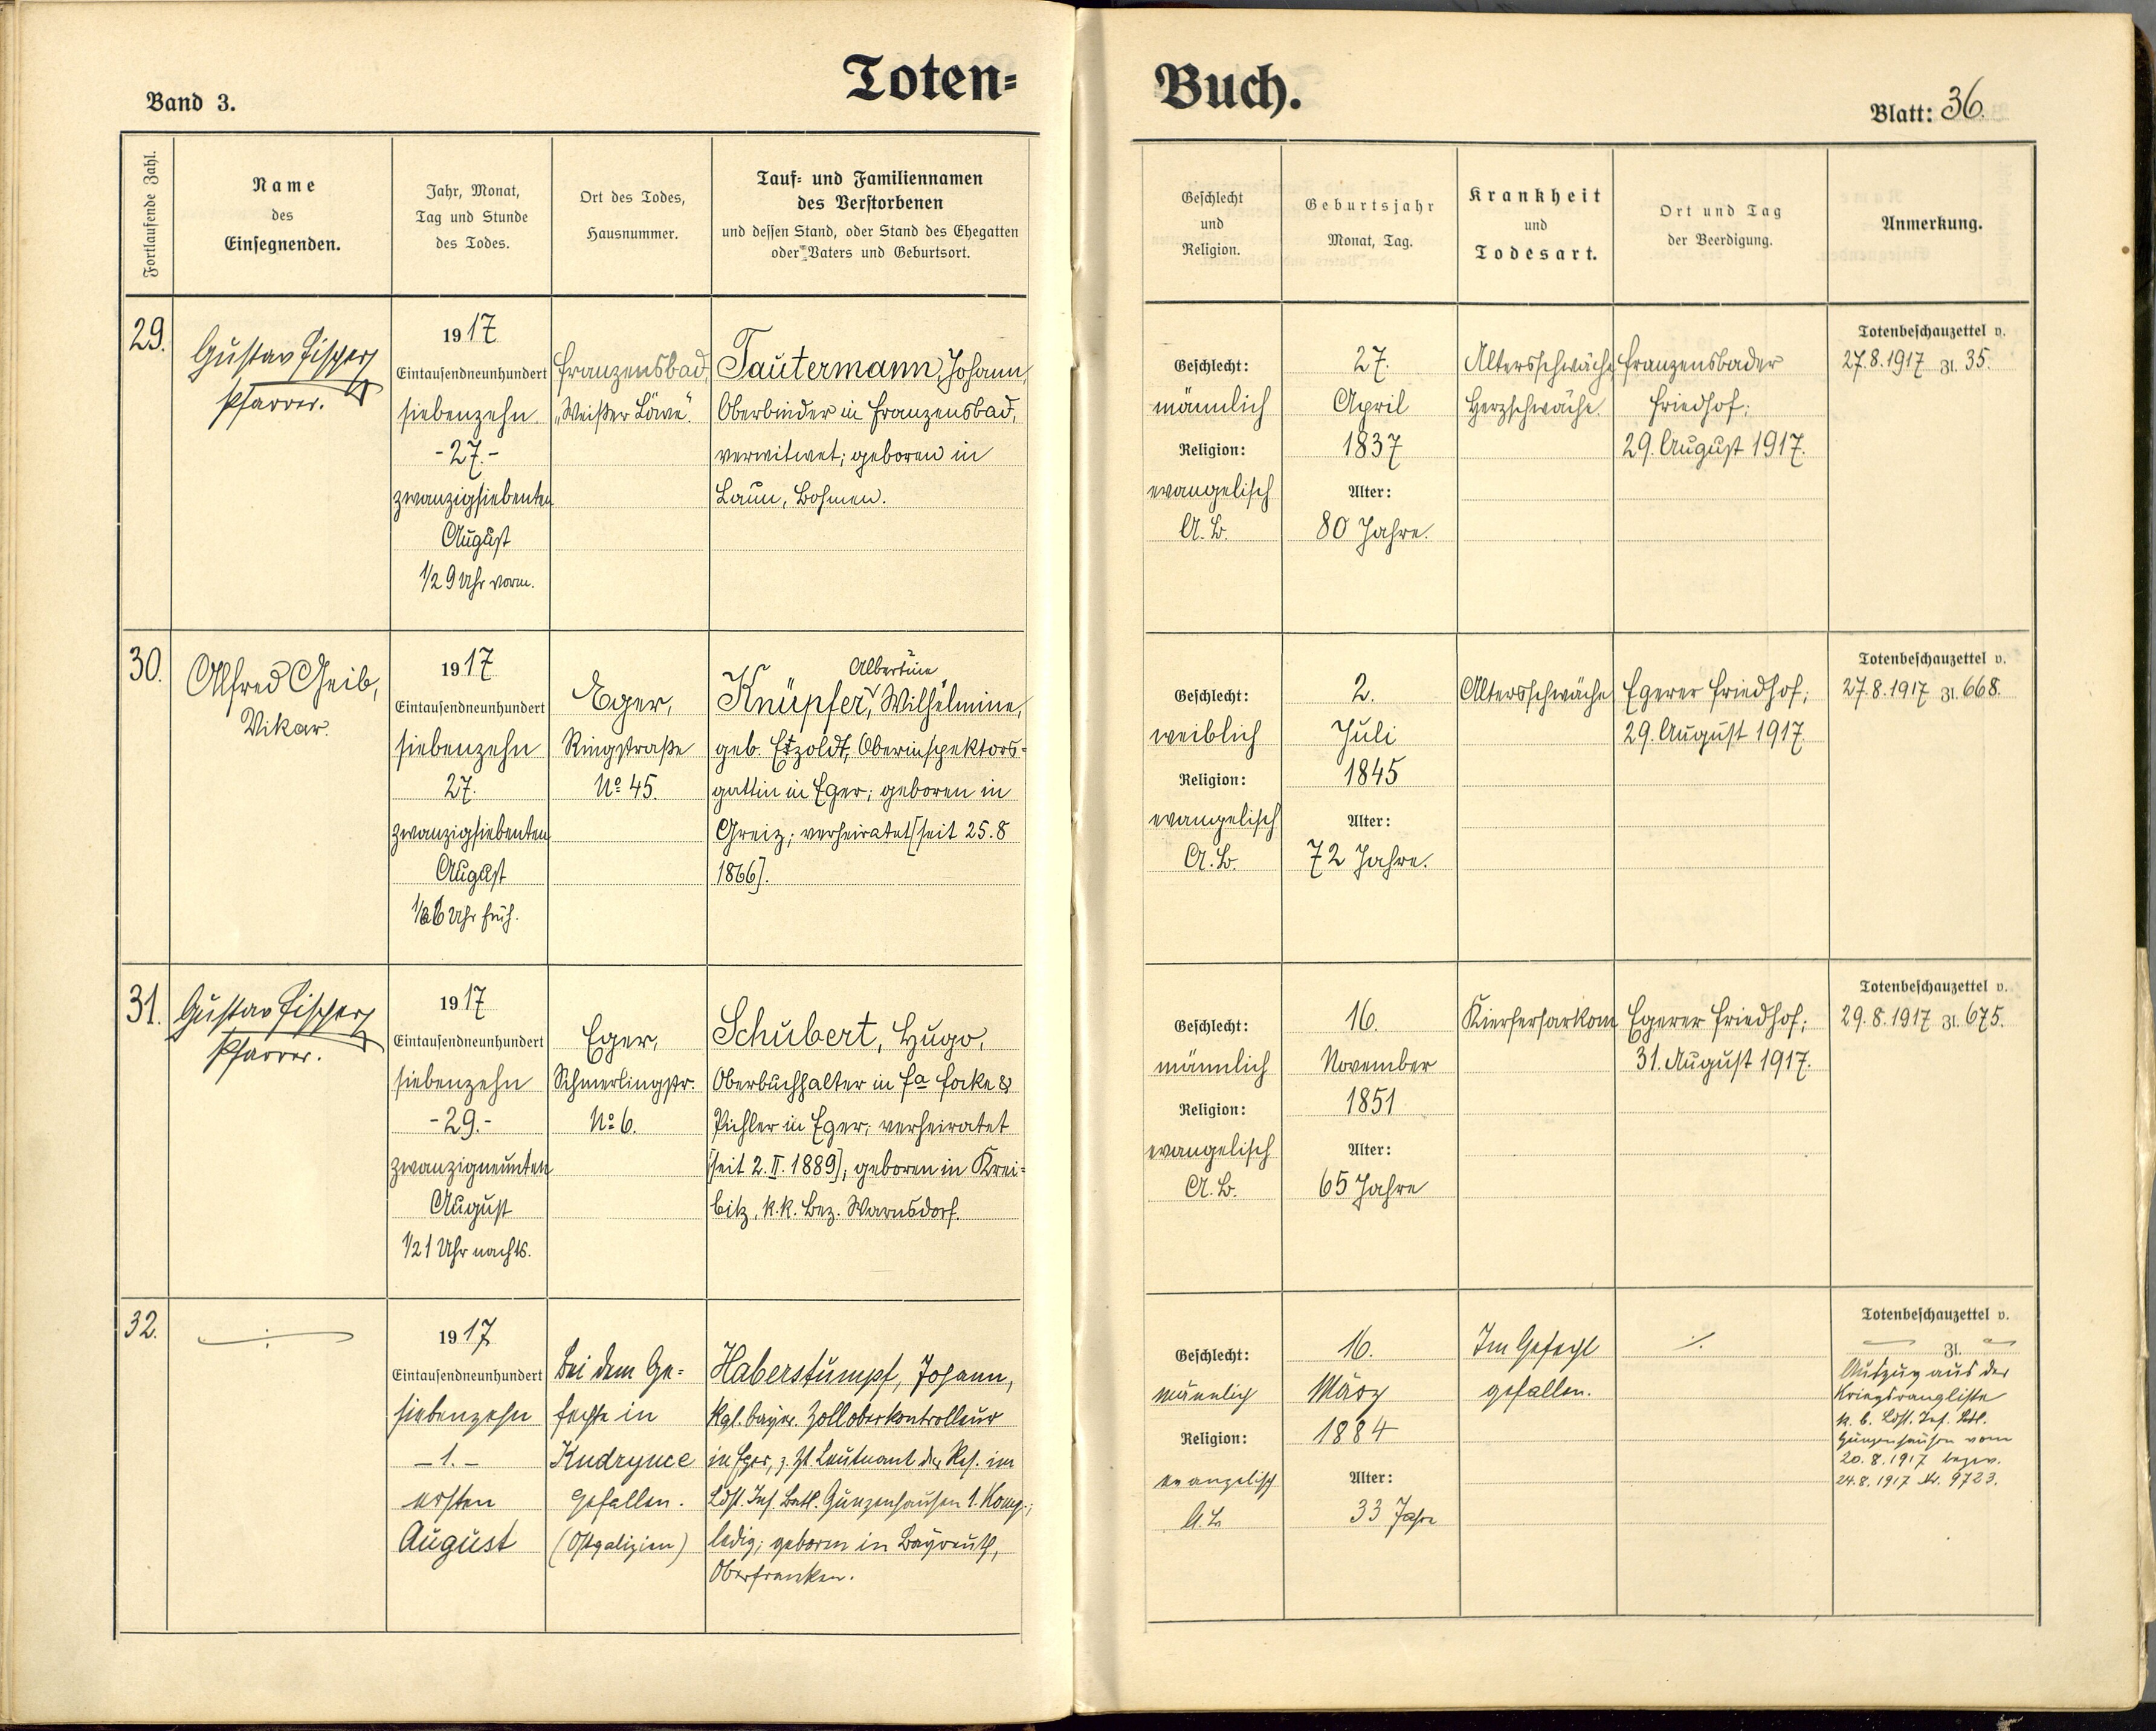 Toten=
Band 3.
Fortlaufende Zahl.
Name
des
Einsegnenden.
Jahr, Monat,
Tag und Stunde
des Todes.
Ort des Todes,
Hausnummer.
Tauf= und Familiennamen
des Verstorbenen
und dessen Stand, oder Stand des Ehegatten
oder Vaters und Geburtsort.
29.
Gustav Fischer
Pfarrer.
1917
Eintausendneunhundert
siebenzehn
-27.-
zwanzigsiebenten
August
1/2 9 Uhr vorm.
Franzensbad,
„Weißer Löwe“.
Tautermann, Johann,
Oberbinder in Franzensbad,
verwitwet; geboren in
Laun, Böhmen.
30.
Alfred Geib,
Vikar.
1917
Eintausendneunhundert
siebenzehn
27.
zwanzigsiebenten
August
Uhr früh.
Eger,
Ringstraße
No 45.
Albertine
Knüpfer, Wilhelmine,
geb. Etzoldt, Oberinspektors=
gattin in Eger; geboren in
Greiz; verheiratet [seit 25.8
1866].
31.
Gustav Fischer
Pfarrer.
1917
Eintausendneunhundert
siebenzehn
-29.-
zwanzigneunten
August
1/2 1 Uhr nachts.
Eger,
Schmerlingstr.
No 6.
Schubert, Hugo,
Oberbuchhalter in Fa Focke &
Pichler in Eger; verheiratet
[seit 2. II. 1889]; geboren in Krei=
bitz, k.k. Bez. Warnsdorf.
32.
1917
Eintausendneunhundert
siebenzehn
-1.-
ersten
August
Bei dem Ge=
fechte in
Kudrynce
gefallen.
(Ostgalizien)
Haberstumpf, Johann,
kgl. bayer. Zolloberkontrolleur
in Eger, z. Zt. Leutnant der Res. im
Ldst. Inf. Batl. Gunzenhausen 1. Komp.;
ledig; geboren in Bayreuth,
Oberfranken.
Buch.
Blatt: 36.
Geschlecht
und
Religion.
Geburtsjahr
Monat, Tag.
Krankheit
und
Todesart.
Ort und Tag
der Beerdigung.
Anmerkung.
Geschlecht:
männlich
Religion:
evangelisch
A. B.
27.
April
1837
Alter:
80 Jahre.
Altersschwäche
Herzschwäche.
Franzensbader
Friedhof;
29. August 1917.
Totenbeschauzettel v.
27.8.1917 Zl. 35.
Geschlecht:
weiblich
Religion:
evangelisch
A. B.
2.
Juli
1845
Alter:
72 Jahre.
Altersschwäche
Egerer Friedhof;
29. August 1917.
Totenbeschauzettel v.
27.8.1917 Zl. 668.
Geschlecht:
männlich
Religion:
evangelisch
A. B.
16.
November
1851
Alter:
65 Jahre
Kiefersarkom
Egerer Friedhof;
31. August 1917.
Totenbeschauzettel v.
29.8.1917 Zl. 675.
Geschlecht:
männlich
Religion:
evangelisch
A. B.
16.
März
1884
Alter:
33 Jahre
Im Gefecht
gefallen.
Totenbeschauzettel v.
Zl.
Auszug aus der
Kriegsrangliste
k. b. Ldst. Inf. Batl.
Gunzenhausen vom
20.8.1917 bezw.
24.8.1917 Nr. 9723.